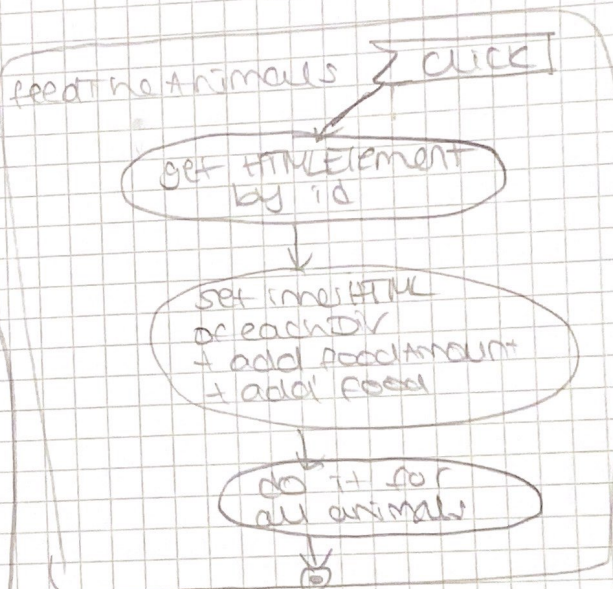 feedTheAnimals
click
get HTMLElement
by id
set innerHTML
of each Div
+ add foodAmount
+ add food
do it for
all animals